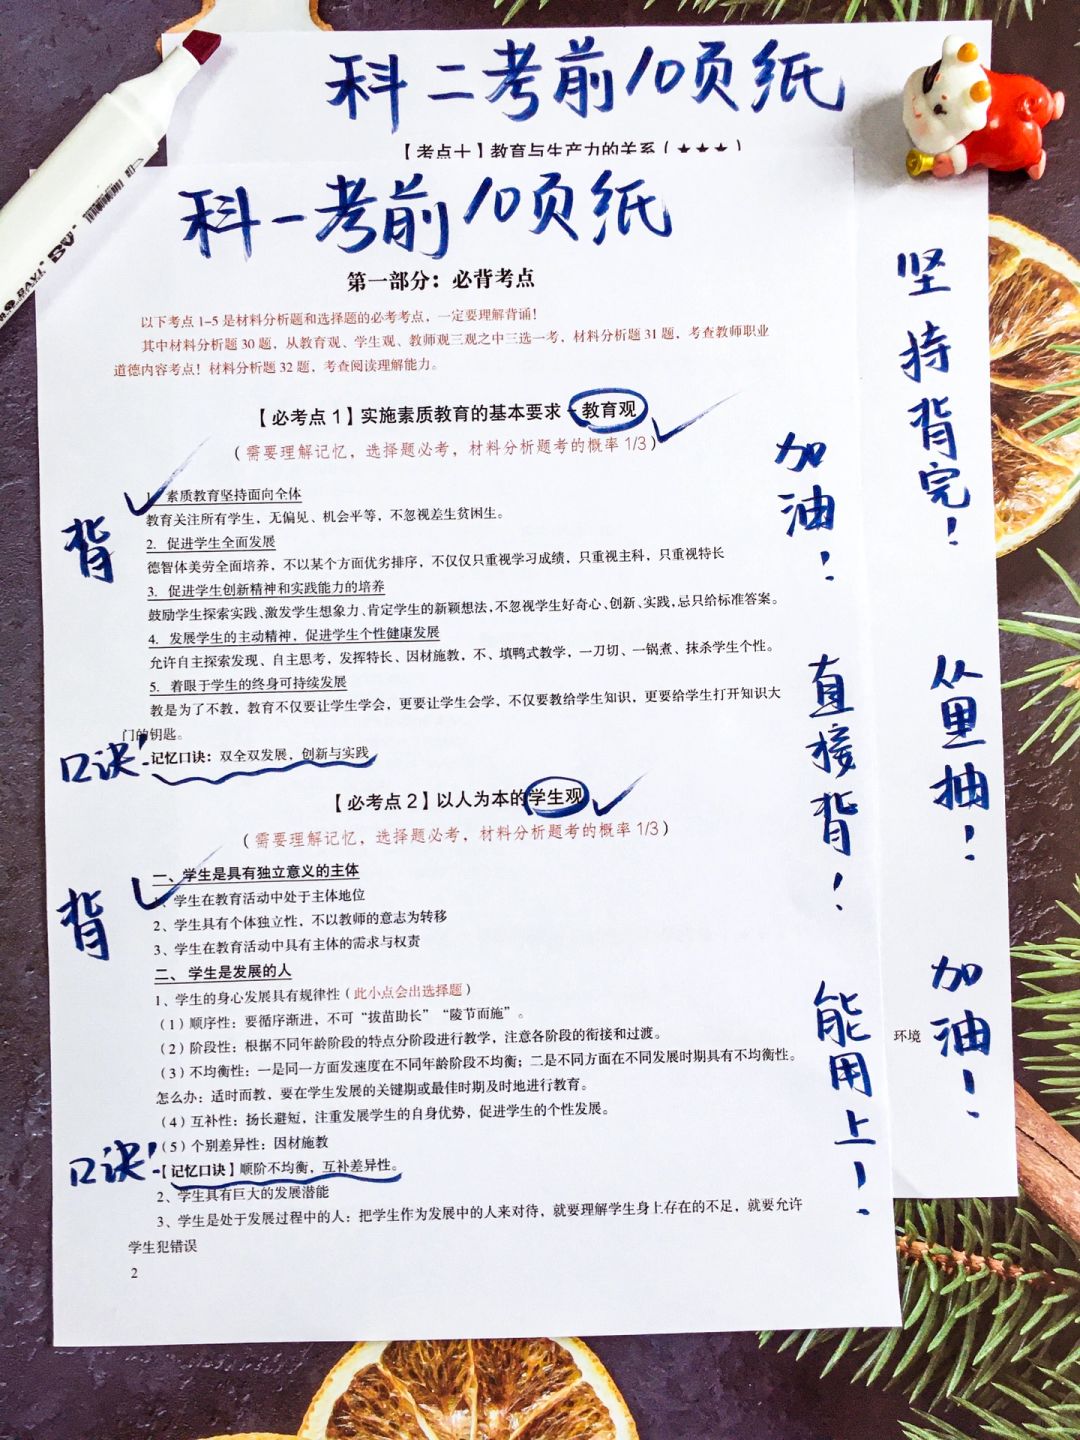 科二考前10页纸
【考点十】教育与生产力的关系(★★★)
科一考前10页纸
第一部分：必背考点
以下考点1-5是材料分析题和选择题的必考考点，一定要理解背诵！
其中材料分析题30题，从教育观、学生观、教师观三观之中三选一考，材料分析题31题，考查教师职业
道德内容考点！材料分析题32题，考查阅读理解能力。
【必考点1】实施素质教育的基本要求-教育观
（需要理解记忆，选择题必考，材料分析题考的概率1/3）
背
1. 素质教育坚持面向全体
教育关注所有学生，无偏见、机会平等，不忽视差生贫困生。
2. 促进学生全面发展
德智体美劳全面培养，不以某个方面优劣排序，不仅仅只重视学习成绩，只重视主科，只重视特长
3. 促进学生创新精神和实践能力的培养
鼓励学生探索实践、激发学生想象力、肯定学生的新颖想法，不忽视学生好奇心、创新、实践，忌只给标准答案。
4. 发展学生的主动精神，促进学生个性健康发展
允许自主探索发现、自主思考，发挥特长、因材施教，不、填鸭式教学，一刀切、一锅煮、抹杀学生个性。
5. 着眼于学生的终身可持续发展
教是为了不教，教育不仅要让学生学会，更要让学生会学，不仅要教给学生知识，更要给学生打开知识大
门的钥匙。
口诀！
记忆口诀：双全双发展，创新与实践
【必考点2】以人为本的学生观
（需要理解记忆，选择题必考，材料分析题考的概率1/3）
背
一、学生是具有独立意义的主体
1、学生在教育活动中处于主体地位
2、学生具有个体独立性，不以教师的意志为转移
3、学生在教育活动中具有主体的需求与权责
二、学生是发展的人
1、学生的身心发展具有规律性（此小点会出选择题）
（1）顺序性：要循序渐进，不可“拔苗助长”“陵节而施”。
（2）阶段性：根据不同年龄阶段的特点分阶段进行教学，注意各阶段的衔接和过渡。
（3）不均衡性：一是同一方面发速度在不同年龄阶段不均衡；二是不同方面在不同发展时期具有不均衡性。
怎么办：适时而教，要在学生发展的关键期或最佳时期及时地进行教育。
（4）互补性：扬长避短，注重发展学生的自身优势，促进学生的个性发展。
（5）个别差异性：因材施教
口诀！
【记忆口诀】顺阶不均衡，互补差异性。
2、学生具有巨大的发展潜能
3、学生是处于发展过程中的人：把学生作为发展中的人来对待，就要理解学生身上存在的不足，就要允许
学生犯错误
2
加油！
直接背！
能用上！
坚持背完！
从里抽！
加油！
环境